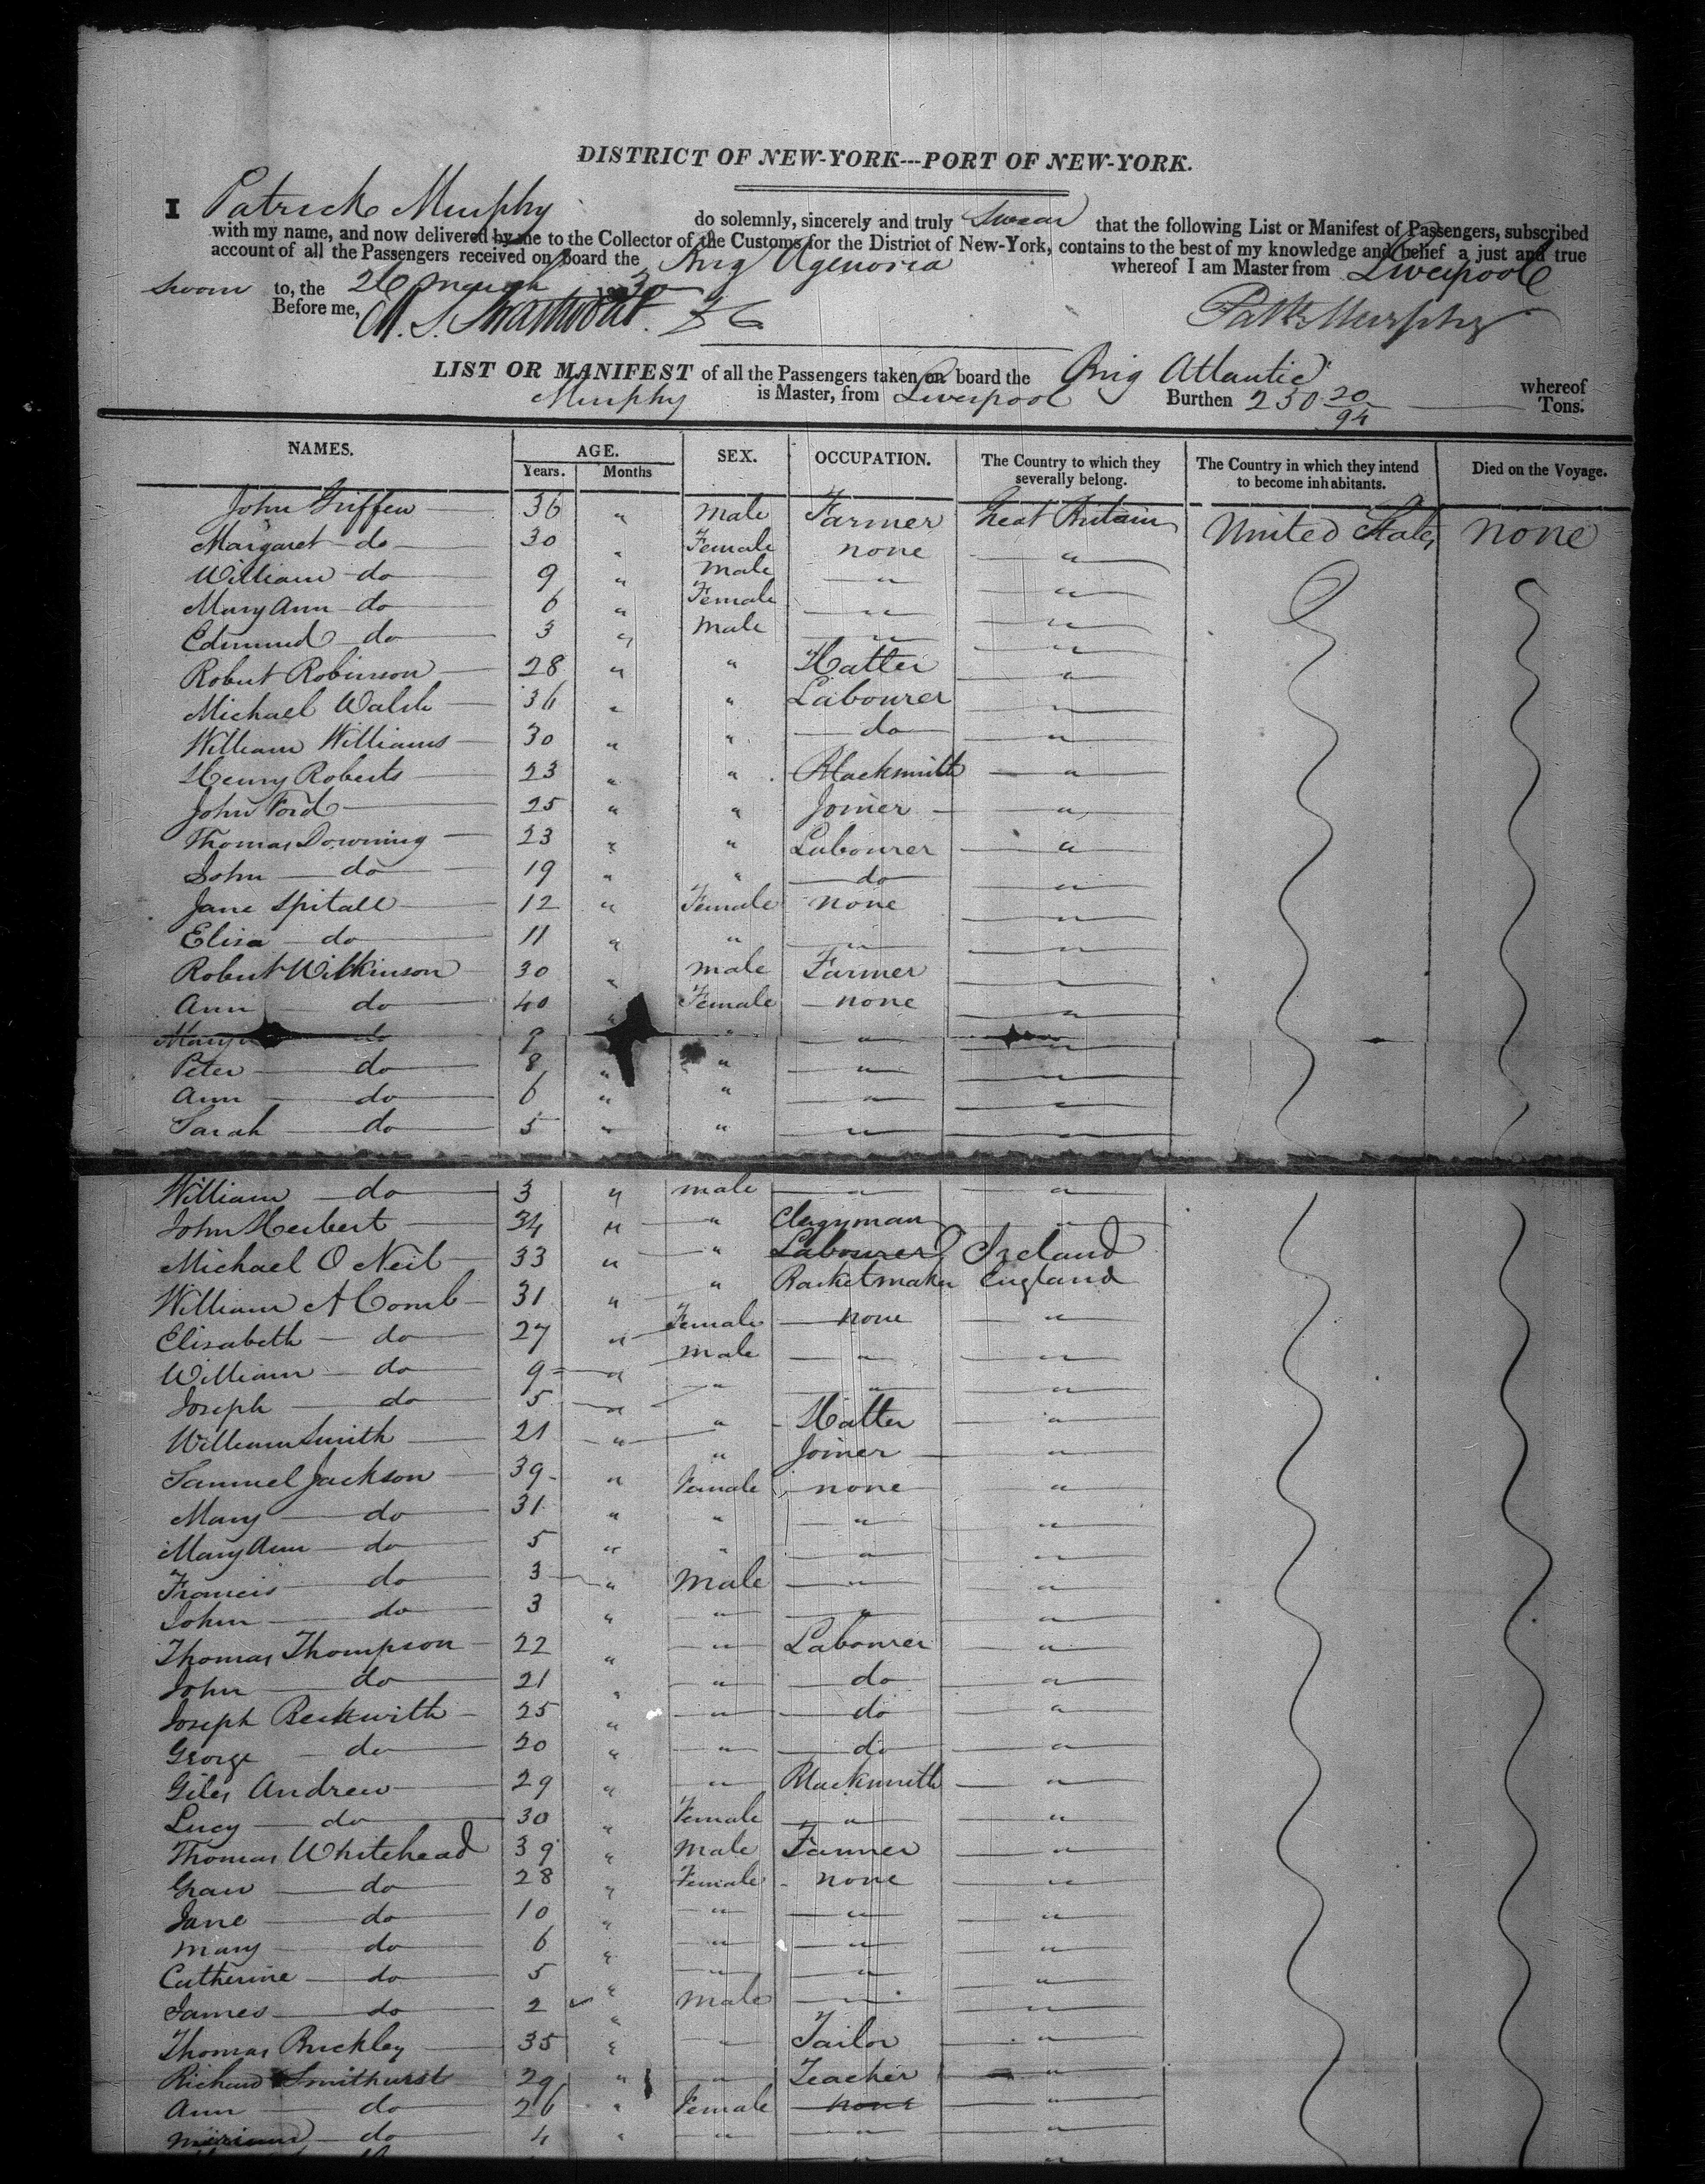 DISTRICT OF NEW-YORK---PORT OF NEW-YORK.
I Patrick Murphy do solemnly, sincerely and truly swear that the following List or Manifest of Passengers, subscribed
with my name, and now delivered by me to the Collector of the Customs for the District of New-York, contains to the best of my knowledge and belief a just and true
account of all the Passengers received on board the Brig Agenoria whereof I am Master from Liverpool
Sworn to, the 26 March 1830
Before me, Patk Murphy
LIST OR MANIFEST of all the Passengers taken on board the Brig Atlantic whereof
Murphy is Master, from Liverpool Burthen 230 20/94 Tons.
NAMES. AGE. SEX. OCCUPATION. The Country to which they severally belong. The Country in which they intend to become inhabitants. Died on the Voyage.
Years. Months
John Griffen 36 " male Farmer Great Britain United States none
Margaret do 30 " Female none "
William do 9 " male " "
Mary Ann do 6 " Female " "
Edmund do 3 " male " "
Robert Robinson 28 " " Hatter "
Michael Walsh 36 " " Labourer "
William Williams 30 " " do "
Henry Roberts 23 " " Blacksmith "
John Ford 25 " " Joiner "
Thomas Downing 23 " " Labourer "
John do 19 " " do "
Jane Spitall 12 " Female none "
Elisa do 11 " " " "
Robert Wilkinson 30 " male Farmer "
Ann do 40 " Female none "
Mary do 9 " " "
Peter do 8 " " " "
Ann do 6 " " " "
Sarah do 5 " " " "
William do 3 " male " "
John Herbert 34 " " Clergyman "
Michael O Neil 33 " " Labourer Ireland
William A Comb 31 " " England
Elisabeth do 27 " Female none "
William do 9 " male " "
Joseph do 5 " " " "
William Smith 21 " " Hatter "
Samuel Jackson 39 " " Joiner "
Mary do 31 " Female none "
Mary Ann do 5 " " " "
Francis do 3 " Male " "
John do 3 " " " "
Thomas Thompson 22 " " Labourer "
John do 21 " " do "
Joseph Beckwith 25 " " do "
George do 20 " " do "
Giles Andrew 29 " " Blacksmith "
Lucy do 30 " Female " "
Thomas Whitehead 39 " male Farmer "
do 28 " Female none "
Jane do 10 " " " "
Mary do 6 " " " "
Catherine do 5 " " " "
James do 2 " male " "
Thomas Buckley 35 " " Tailor "
Richard Smithurst 29 " " Teacher "
Ann do 26 " Female none "
do 4 " " " "